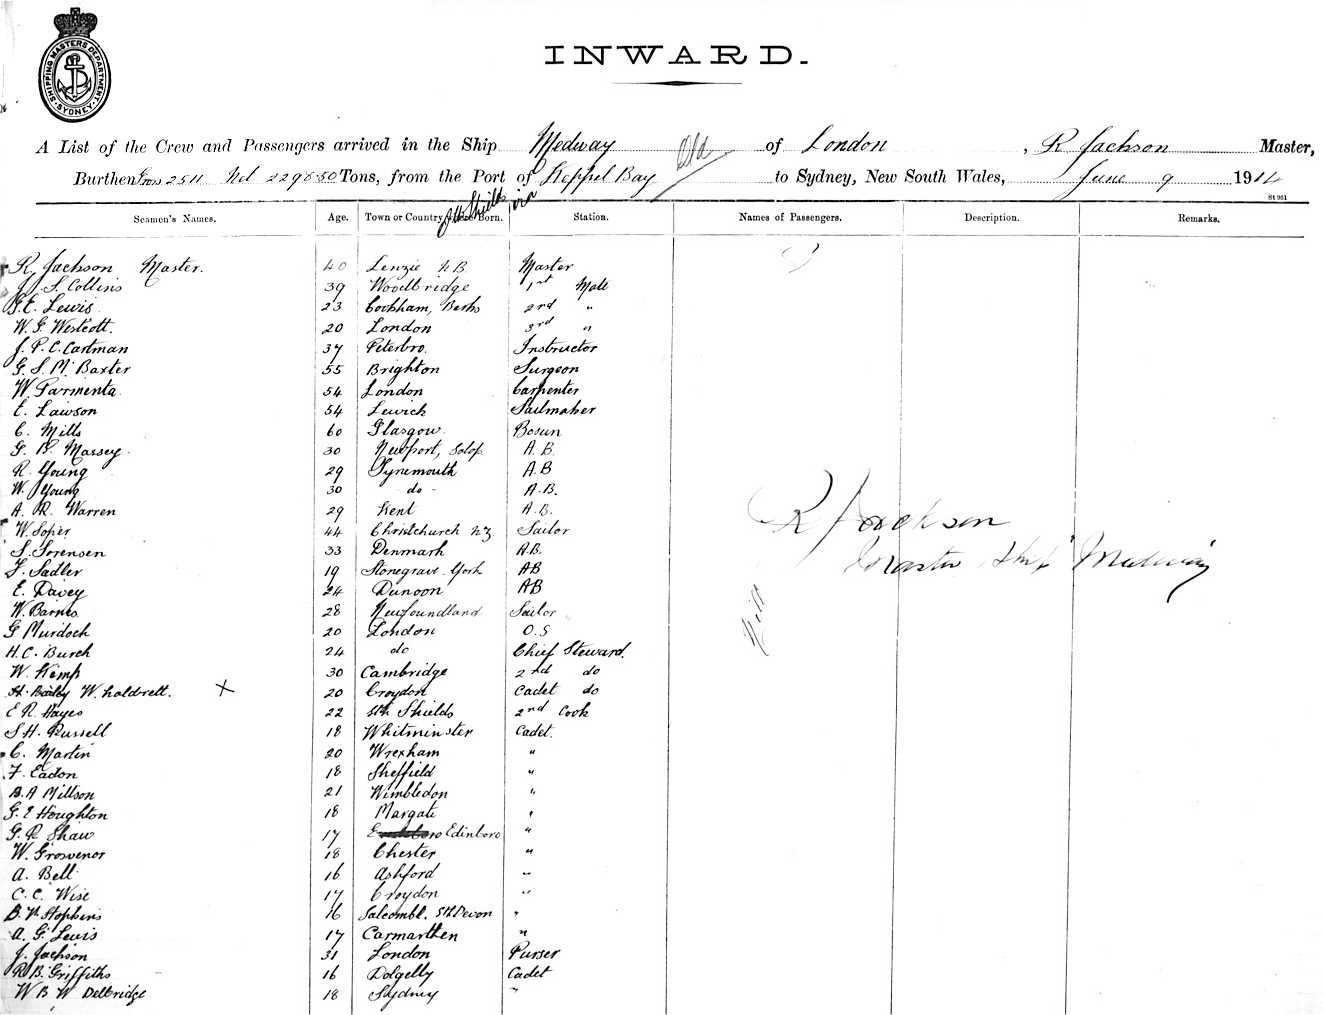 SHIPPING MASTERS DEPARTMENT · SYDNEY ·
INWARD.
A List of the Crew and Passengers arrived in the Ship Medway of London, R Jackson Master,
Burthen Gross 2511 Net 2298.50 Tons, from the Port of Keppel Bay to Sydney, New South Wales, June 9 1914
Sth Shields via
St 961
Seamen's Names. Age. Town or Country where Born. Station. Names of Passengers. Description. Remarks.
R Jackson Master. 40 Lenzie N B Master
J. S. Collins 39 Woodbridge 1st Mate
G. E. Lewis 23 Cookham, Berks 2nd "
W. G. Westcott. 20 London 3rd "
J. P. C. Cartman 37 Peterbro. Instructor
G. S. M. Baxter 55 Brighton Surgeon
W. Parmenta 54 London Carpenter
E. Lawson 54 Lewick Sailmaker
C. Mills 60 Glasgow Bosun
G. B. Massey. 30 Newport, Salop A.B.
R. Young 29 Tynemouth A.B
W. Young 30 - do - A.B.
A. R. Warren 29 Kent A.B.
W. Soper 44 Christchurch NZ Sailor
S. Sorensen 33 Denmark A.B.
F. Sadler 19 Stonegrave York AB
E. Davey 24 Dunoon AB
W. Barnes 28 Newfoundland Sailor
G Murdoch 20 London O.S
H. C. Burch 24 do Chief Steward.
W. Kemp 30 Cambridge 2nd do
H. Baily W. Choldrett. X 20 Croydon Cadet do
E R. Hayes 22 Sth Shields 2nd Cook
S H. Russell 18 Whitminster Cadet.
C. Martin 20 Wrexham "
F. Eadon 18 Sheffield "
B. A Millson 21 Wimbledon "
G. E Houghton 18 Margate "
G. R Shaw 17 Edinboro "
W. Grosvenor 18 Chester "
A. Bell 16 Ashford "
C. C. Wise 17 Croydon "
B. V. Hopkins 16 Salcombe. Sth Devon "
A. G. Lewis 17 Carmarthen "
J. Jackson 31 London Purser
R B. Griffiths 16 Dolgelly Cadet
W B W Delbridge 18 Sydney "
R Jackson
Master Ship "Medway"
Nil